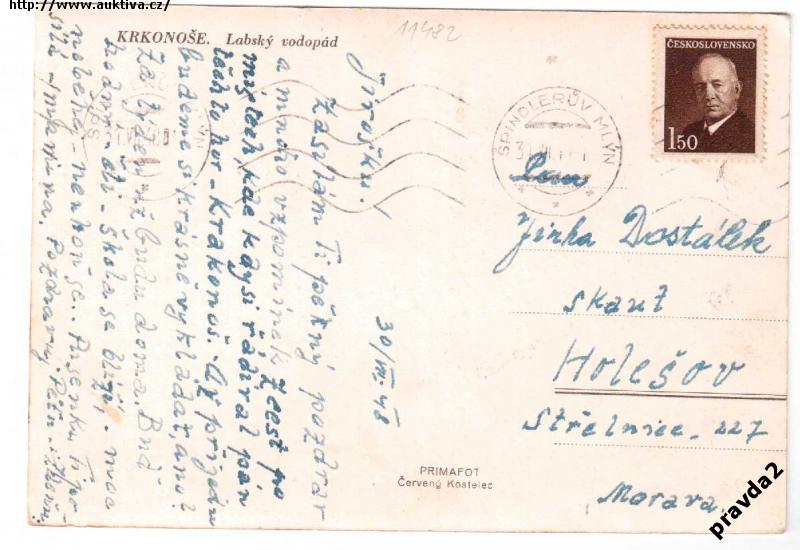 http://www.auktiva.cz/
KRKONOŠE. Labský vodopád
11482
ČESKOSLOVENSKO
1.50
ŠPINDLERŮV MLÝN
30/VIII. 48
Jiroušku!
Zasílám Ti pěkný pozdrav
a mnoho vzpomínek z cest po
místech, kde kdysi řádíval pán
těchto hor - Krakonoš. Až přijedu
budeme si krásně vykládat, ano?
Za týden už budu doma. Buď
hodný - škola se blíží, moc
Pozdravuj
Pan
Jirka Dostálek
skaut
Holešov
Střelnice 227
Morava.
PRIMAFOT
Červený Kostelec
pravda2